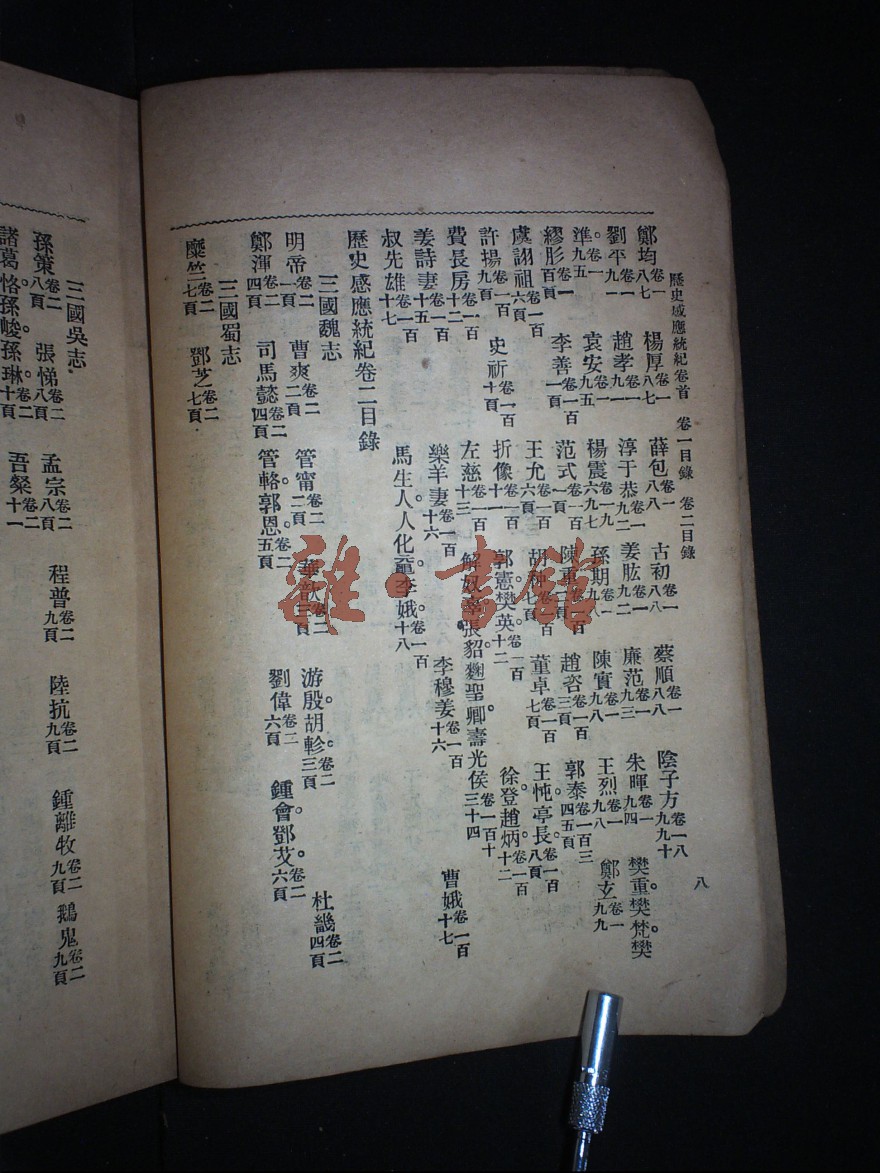 歷史感應統紀卷首 卷一目錄 卷二目錄 八
鄭均卷一八七 楊厚卷一八七 薛包卷一八八 古初卷一八八 蔡順卷一八八 陰子方卷一八九十
劉平卷一九一 趙孝卷一九一 淳于恭卷一九二 姜肱卷一九二 廉范卷一九三 朱暉卷一九四 樊重。樊梵樊
準。卷一九五 袁安卷一九五 楊震卷一九六九七 孫期卷一九八 陳寔卷一九八 王烈卷一九八 鄭玄卷一九九
繆肜卷一百頁 李善卷一百一頁 范式卷一百一頁 陳重卷一百二頁 趙咨卷一百三頁 郭泰卷一百三四五頁
虞詡祖卷一百六頁 王允卷一百六頁 胡种卷一百七頁 董卓卷一百七頁 王忳。亭長卷一百八頁
許揚卷一百九頁 史祈卷一百十頁 折像卷一百十一 郭憲。樊英卷一百十二 徐登。趙炳卷一百十二
費長房卷一百十二 左慈卷一百十三 解奴辜。張貂。麴聖卿。壽光侯卷一百十三十四
姜詩妻卷一百十五 樂羊妻卷一百十六 李穆姜卷一百十六 曹娥卷一百十七
叔先雄卷一百十七 馬生人。人化黿。李娥卷一百十八
歷史感應統紀卷二目錄
三國魏志
明帝卷二一頁 曹爽卷二二頁 管甯卷二二頁 華歆卷二三頁 游殷。胡軫卷二三頁 杜畿卷二四頁
鄭渾卷二四頁 司馬懿卷二四頁 管輅。郭恩卷二五頁 劉偉卷二六頁 鍾會。鄧艾卷二六頁
三國蜀志
糜竺卷二七頁 鄧芝卷二七頁
三國吳志
孫策卷二八頁 張悌卷二八頁 孟宗卷二八頁 程普卷二九頁 陸抗卷二九頁 鍾離牧卷二九頁 鵝鬼卷二九頁
諸葛恪。孫峻。孫琳卷二十頁 吾粲卷二十一
雜·書館